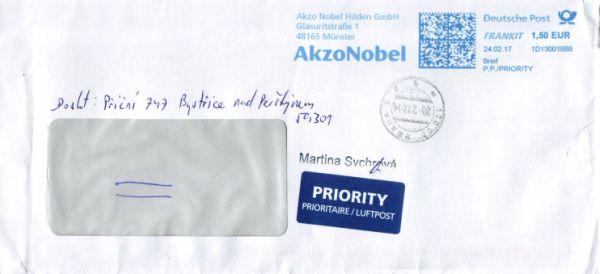 Akzo Nobel Hilden GmbH
Glasuritstraße 1
48165 Münster
AkzoNobel
Deutsche Post
FRANKIT 1,50 EUR
24.02.17 1D13001688
Brief
P.P./PRIORITY
Příční 747 Bystřice nad Pernštejnem
Martina
PRIORITY
PRIORITAIRE / LUFTPOST